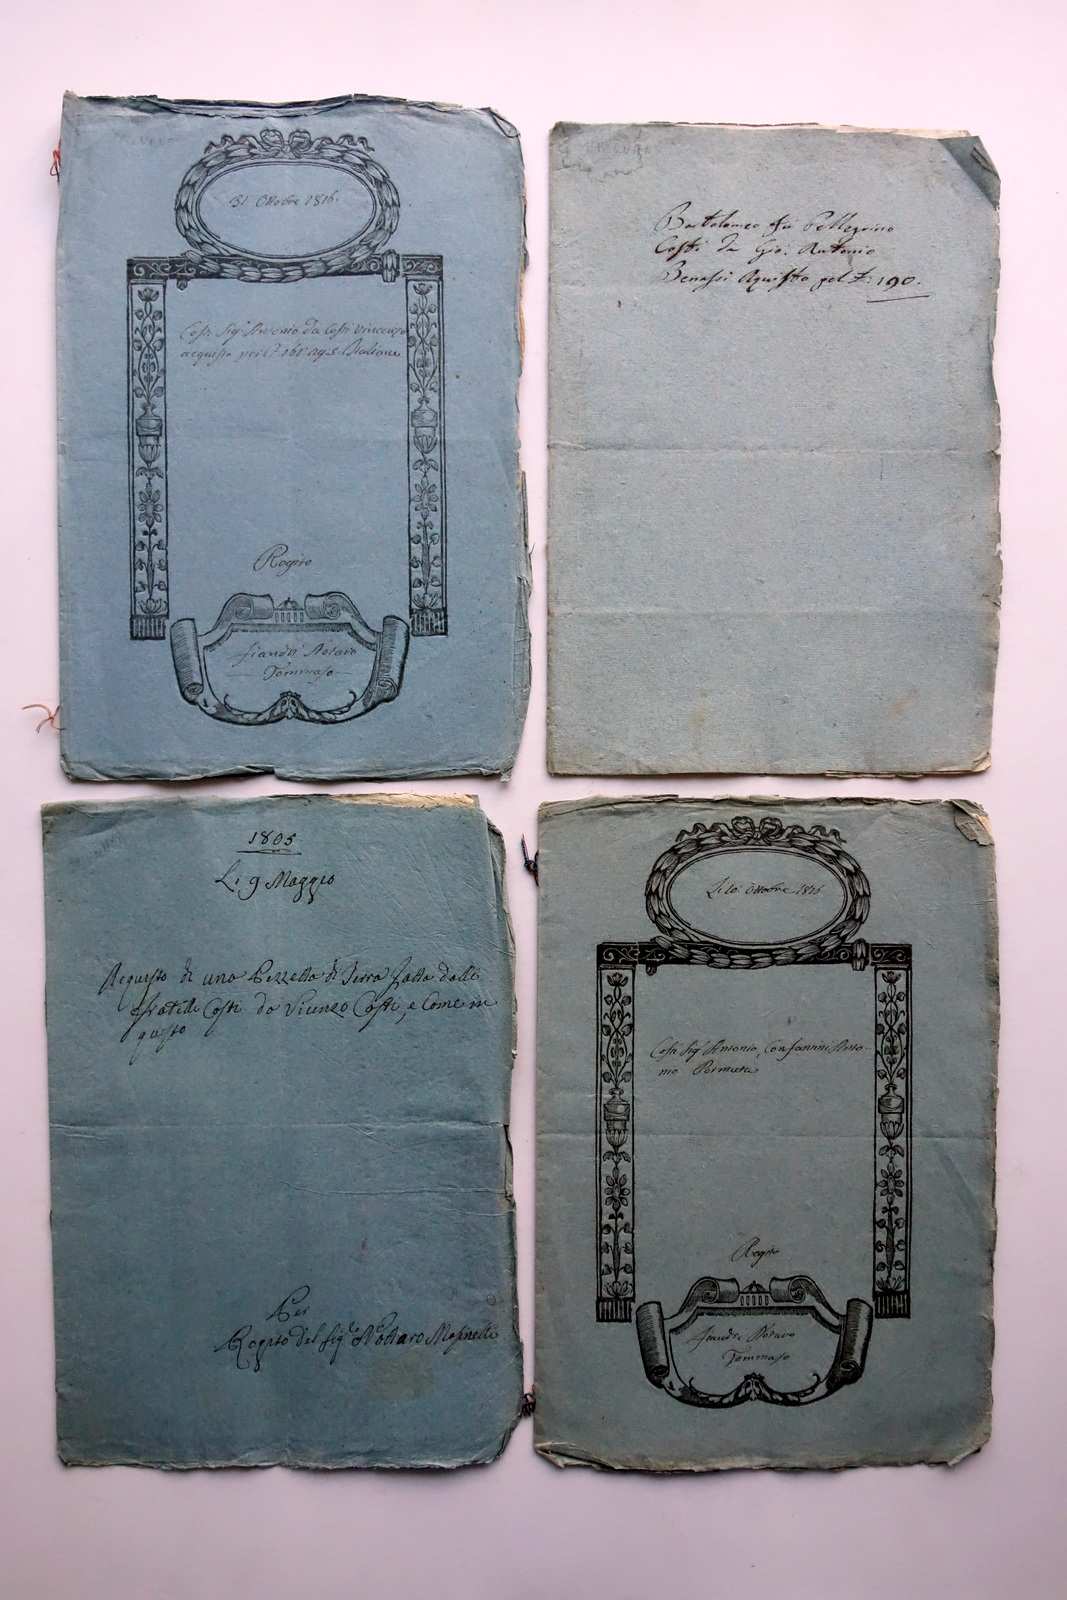 31 Ottobre 1816.
Costi Sig.r Antonio da Costi Vincenzo
acquisto per Italiane
Rogito
Fiandri Notaro
Tommaso
Bartolomeo fu Pellegrino
Costi da Gio. Antonio
Benassi Aquisto pel £: 190.
1805
Li 9 Maggio
Acquisto di una Pezzetta di Terra fatta dalli
fratelli Costi da Vicenzo Costi, e Come in
questo
Per
Rogito del Sig.re Nottaro Mesinelli
Li 10 Ottobre 1816
Costi Sig.r Antonio, Consantini Anto-
nio Permuta
Rogito
Fiandri Notaro
Tommaso